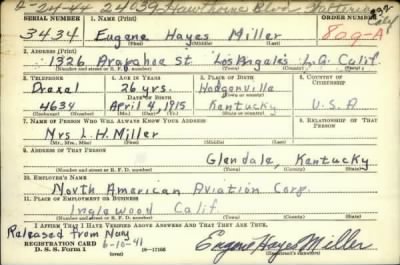 2-24-44 24639 Hawthorne Blvd
SERIAL NUMBER 1. NAME (Print) ORDER NUMBER
3434 Eugene Hayes Miller 809-A
(First) (Middle) (Last)
2. ADDRESS (Print)
1326 Arapahoe St. Los Angeles L.A. Calif.
(Number and street or R. F. D. number) (Town) (County) (State)
3. TELEPHONE 4. AGE IN YEARS 5. PLACE OF BIRTH 6. COUNTRY OF CITIZENSHIP
Drexel 26 yrs. Hodgenville
DATE OF BIRTH (Town or county)
4634 April 4, 1915 Kentucky U.S.A
(Exchange) (Number) (Mo.) (Day) (Yr.) (State or country)
7. NAME OF PERSON WHO WILL ALWAYS KNOW YOUR ADDRESS 8. RELATIONSHIP OF THAT PERSON
Mrs L.H. Miller
(Mr., Mrs., Miss) (First) (Middle) (Last)
9. ADDRESS OF THAT PERSON
Glendale, Kentucky
(Number and street or R. F. D. number) (Town) (County) (State)
10. EMPLOYER'S NAME
North American Aviation Corp.
11. PLACE OF EMPLOYMENT OR BUSINESS
Inglewood Calif.
(Number and street or R. F. D. number) (Town) (County) (State)
I AFFIRM THAT I HAVE VERIFIED ABOVE ANSWERS AND THAT THEY ARE TRUE.
Released from Navy
REGISTRATION CARD 6-10-41 Eugene Hayes Miller
D. S. S. Form 1 16-17105 (Registrant's signature)